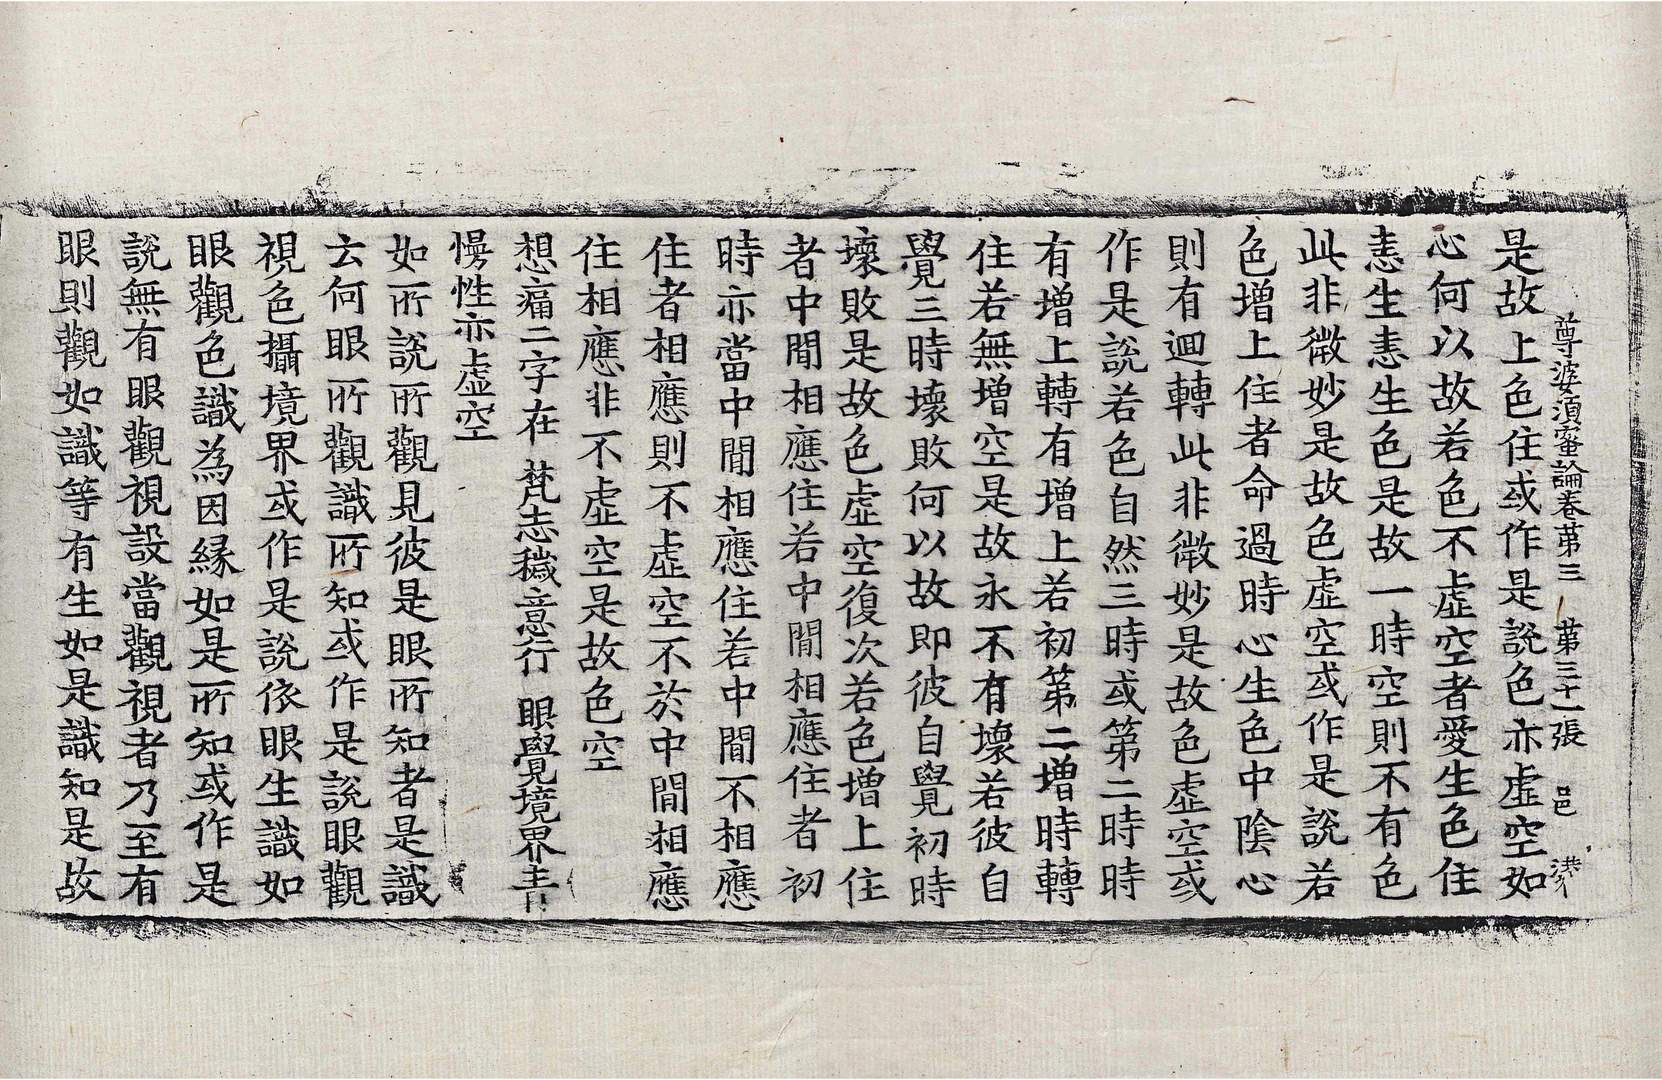 尊婆須蜜論卷第三 第三十一張 邑
是故上色住或作是說色亦虛空如
心何以故若色不虛空者愛生色住
恚生恚生色是故一時空則不有色
此非微妙是故色虛空或作是說若
色增上住者命過時心生色中陰心
則有迴轉此非微妙是故色虛空或
作是說若色自然三時或第二時時
有增上轉有增上若初第二增時轉
住若無增空是故永不有壞若彼自
覺三時壞敗何以故即彼自覺初時
壞敗是故色虛空復次若色增上住
者中間相應住若中間相應住者初
時亦當中間相應住若中間不相應
住者相應則不虛空不於中間相應
住相應非不虛空是故色空
想痛二字在 梵志穢意行 眼覺境界青
慢性亦虛空
如所說所觀見彼是眼所知者是識
云何眼所觀識所知或作是說眼觀
視色攝境界或作是說依眼生識如
眼觀色識為因緣如是所知或作是
說無有眼觀視設當觀視者乃至有
眼則觀如識等有生如是識知是故